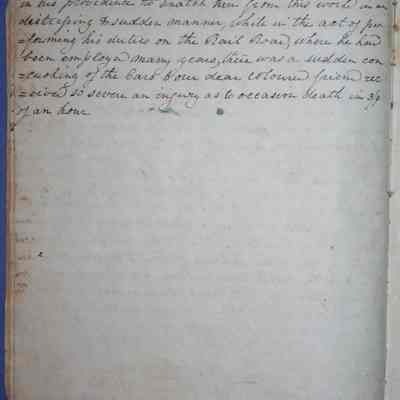 in his providence to snatch him from this world in a
distressing & sudden manner, while in the act of per
=forming his duties on the Rail Road, where he had
been employd many years, there was a sudden con
=cushing of the Cars & our dear coloured friend rec
=eived so severe an injury as to occasion death in 3/4
of an hour